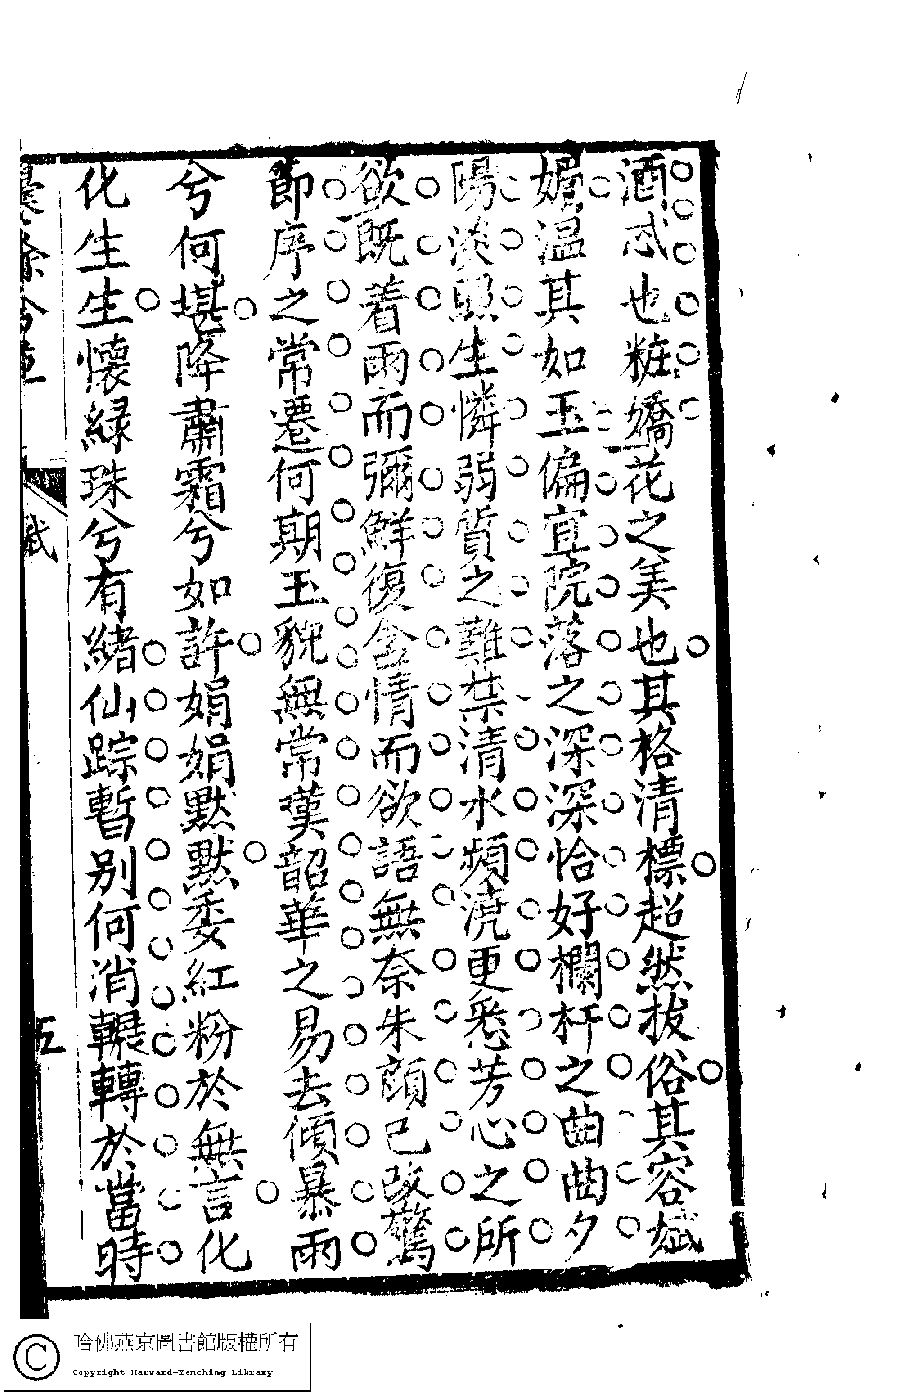 酒忒也粧嬌花之美也其格清標超然拔俗其容斌
媚溫其如玉偏宜院落之深深恰好欄杆之曲曲夕
陽淡照生憐弱質之難禁清水頻澆更悉芳心之所
欲既着雨而彌鮮復含情而欲語無奈朱顔已改驚
節序之常遷何期玉貌無常嘆韶華之易去傾暴雨
兮何堪降肅霜兮如許娟娟默默委紅粉於無言化
化生生懷緑珠兮有緒仙踪暫别何消輾轉於當時
賦
五
哈佛燕京圖書館版權所有
Copyright Harvard-Yenching Library